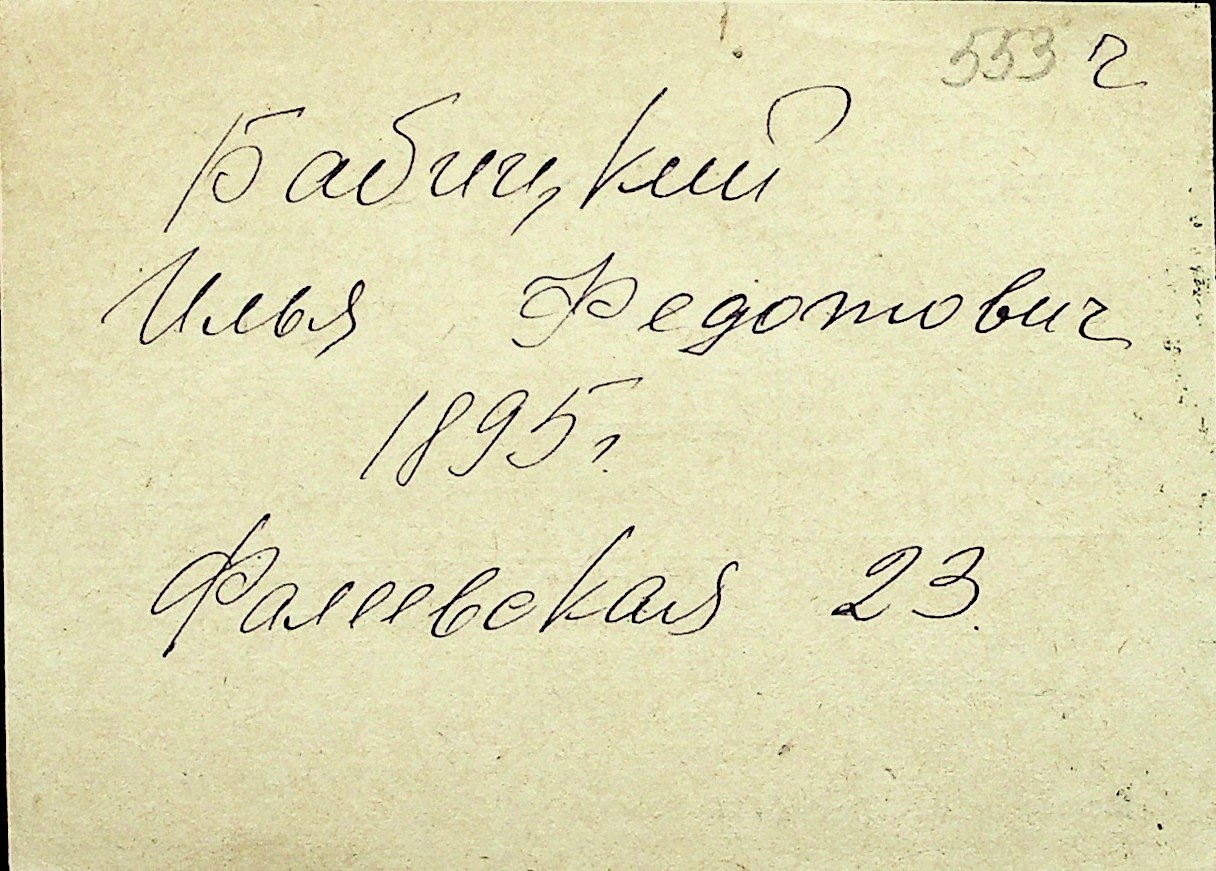 553 ч
Бабицкий
Илья Федотович
1895г.
Фалеевская 23.